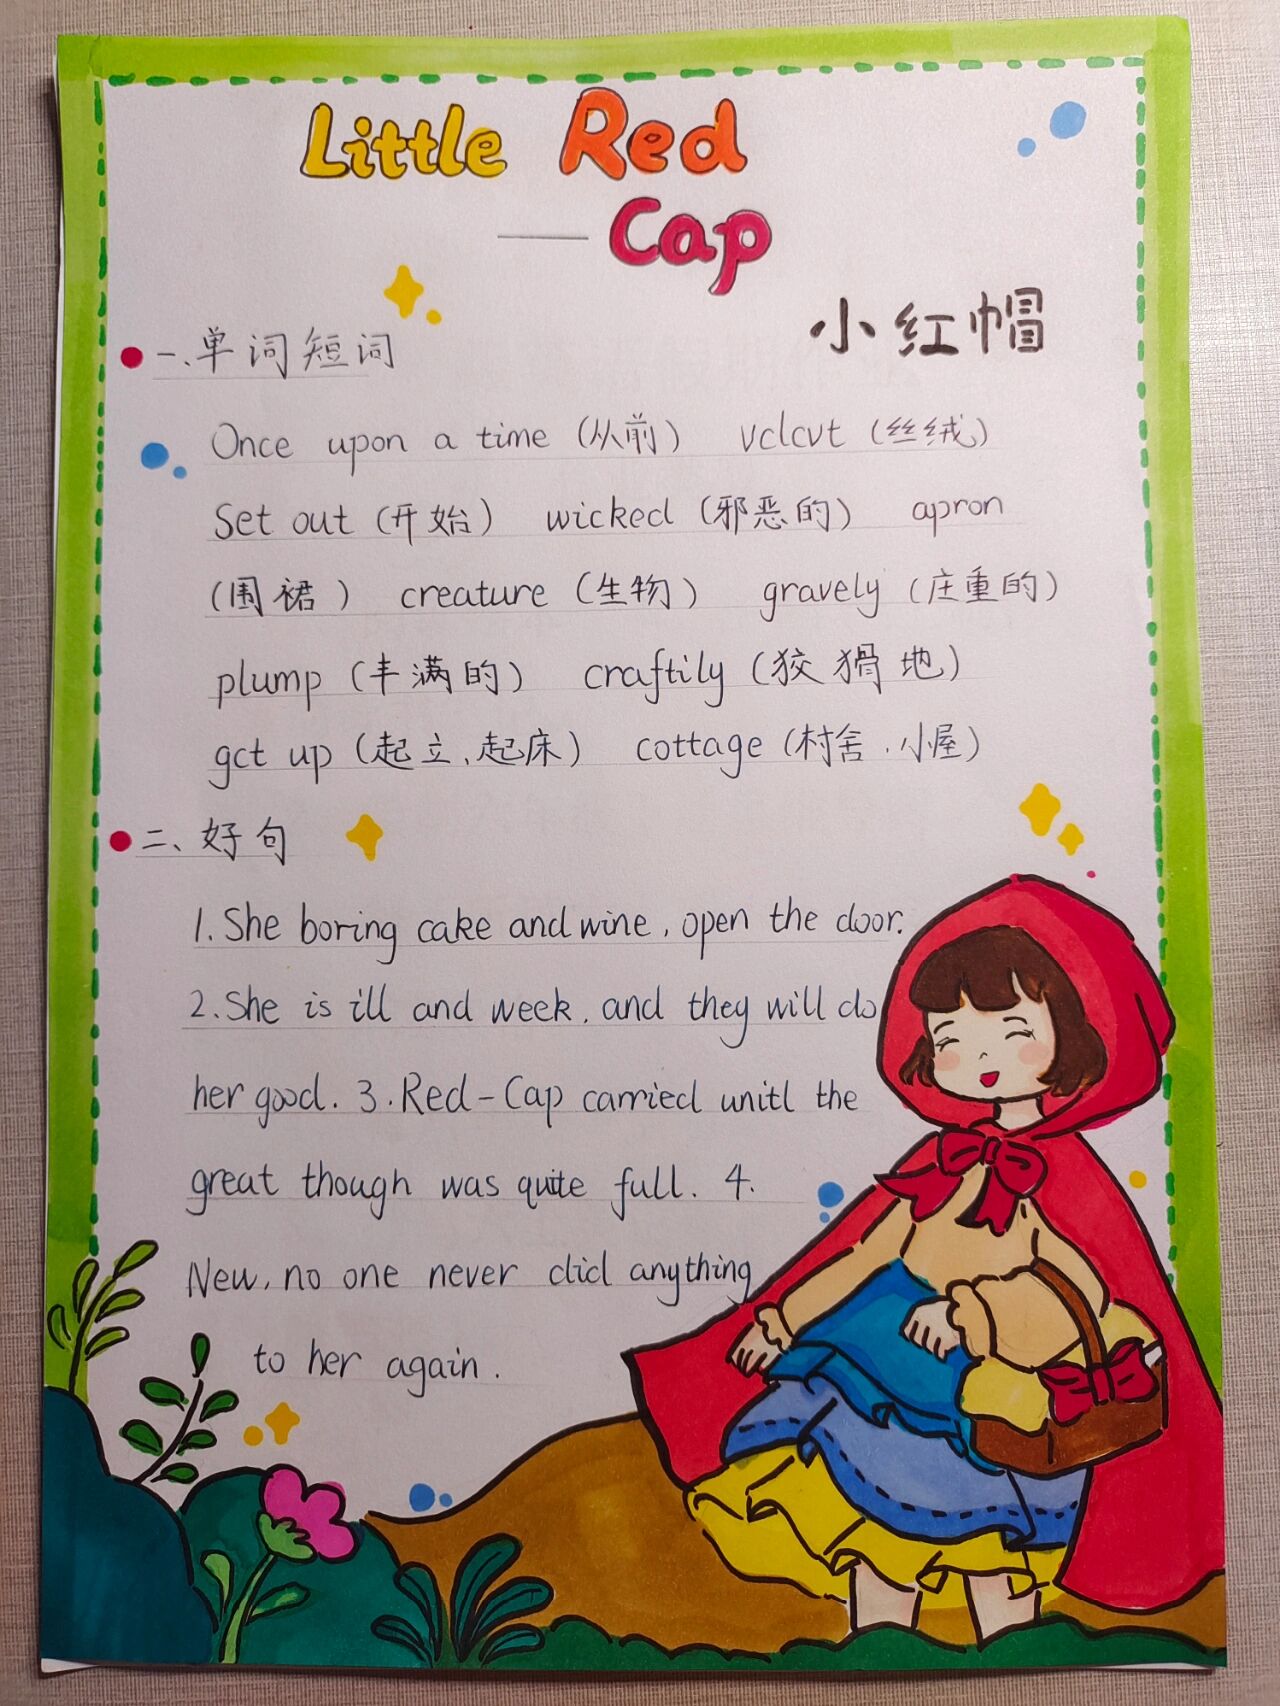 Little Red
—Cap
小红帽
一、单词短词
Once upon a time (从前) vclcvt (丝绒)
Set out (开始) wicked (邪恶的) apron
(围裙) creature (生物) gravely (庄重的)
plump (丰满的) craftily (狡猾地)
gct up (起立、起床) cottage (村舍、小屋)
二、好句
1. She boring cake and wine, open the door.
2. She is ill and week, and they will do
her good. 3. Red-Cap carried unitl the
great though was quite full. 4.
New, no one never did anything
to her again.